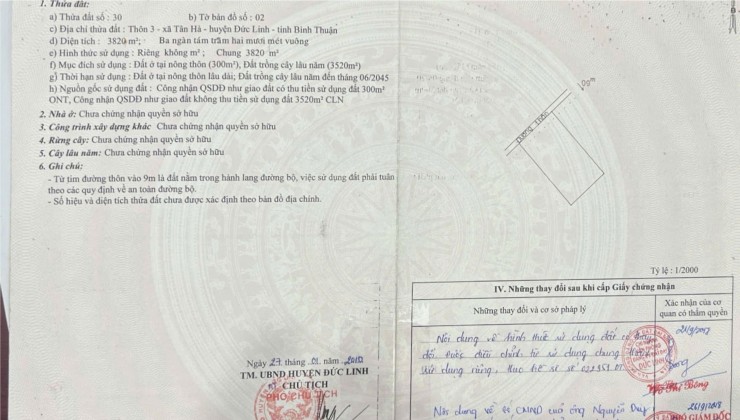 1. Thửa đất:
a) Thửa đất số : 30 b) Tờ bản đồ số : 02
c) Địa chỉ thửa đất : Thôn 3 - xã Tân Hà - huyện Đức Linh - tỉnh Bình Thuận
d) Diện tích : 3820 m²; Ba ngàn tám trăm hai mươi mét vuông
e) Hình thức sử dụng : Riêng không m² ; Chung 3820 m²
f) Mục đích sử dụng : Đất ở tại nông thôn (300m²), Đất trồng cây lâu năm (3520m²)
g) Thời hạn sử dụng : Đất ở tại nông thôn lâu dài; Đất trồng cây lâu năm đến tháng 06/2045
h) Nguồn gốc sử dụng đất : Công nhận QSDĐ như giao đất có thu tiền sử dụng đất 300m²
ONT, Công nhận QSDĐ như giao đất không thu tiền sử dụng đất 3520m² CLN
2. Nhà ở: Chưa chứng nhận quyền sở hữu
3. Công trình xây dựng khác Chưa chứng nhận quyền sở hữu
4. Rừng cây: Chưa chứng nhận quyền sở hữu
5. Cây lâu năm: Chưa chứng nhận quyền sở hữu
6. Ghi chú:
- Từ tim đường thôn vào 9m là đất nằm trong hành lang đường bộ, việc sử dụng đất phải tuân
theo các quy định về an toàn đường bộ.
- Số hiệu và diện tích thửa đất chưa được xác định theo bản đồ địa chính.
Ngày 27 tháng 01. năm
TM. UBND HUYỆN ĐỨC LINH
CHỦ TỊCH
PHÓ CHỦ TỊCH
Đường thôn
Tỷ lệ : 1/2000
IV. Những thay đổi sau khi cấp Giấy chứng nhận
Những thay đổi và cơ sở pháp lý
Xác nhận của cơ
quan có thẩm quyền
Nội dung về hình thức sử dụng đất có thay
đổi, được điều chỉnh từ sử dụng chung
sử dụng riêng, theo hồ sơ số
Nội dung về số CMND của ông Nguyễn Duy
GIÁM ĐỐC